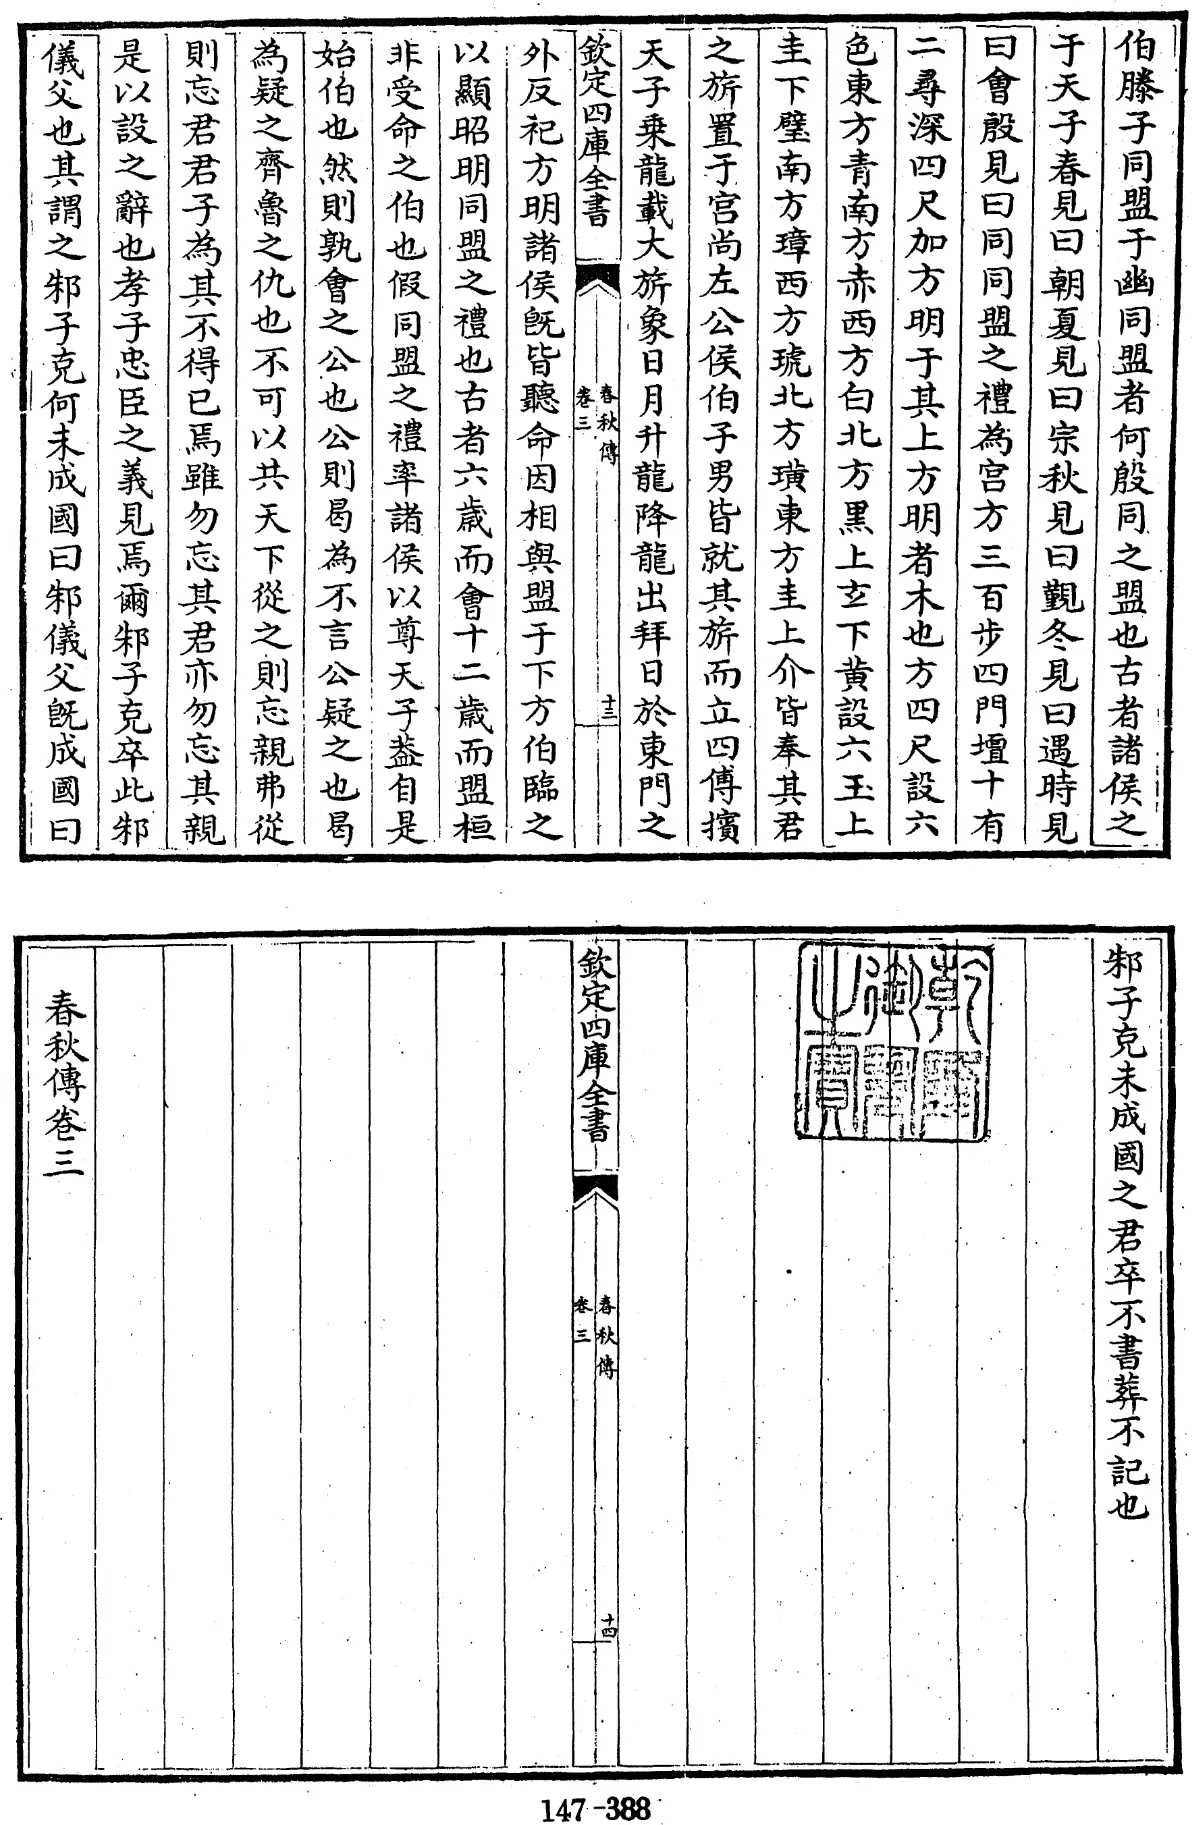 伯滕子同盟于幽同盟者何殷同之盟也古者諸侯之
于天子春見曰朝夏見曰宗秋見曰覲冬見曰遇時見
曰會殷見曰同同盟之禮為宫方三百步四門壇十有
二尋深四尺加方明于其上方明者木也方四尺設六
色東方青南方赤西方白北方黑上𤣥下黄設六玉上
圭下璧南方璋西方琥北方璜東方圭上介皆奉其君
之旂置于宫尚左公侯伯子男皆就其旂而立四傳擯
天子乗龍載大旂象日月升龍降龍出拜日於東門之
欽定四庫全書
春秋傳
卷三
十三
外反祀方明諸侯旣皆聽命因相與盟于下方伯臨之
以顯昭明同盟之禮也古者六歲而會十二歲而盟桓
非受命之伯也假同盟之禮率諸侯以尊天子葢自是
始伯也然則孰會之公也公則曷為不言公疑之也曷
為疑之齊魯之仇也不可以共天下從之則忘親弗從
則忘君君子為其不得已焉雖勿忘其君亦勿忘其親
是以設之辭也孝子忠臣之義見焉爾邾子克卒此邾
儀父也其謂之邾子克何未成國曰邾儀父旣成國曰
邾子克未成國之君卒不書葬不記也
乾隆御覽之寶
欽定四庫全書
春秋傳
卷三
十四
春秋傳卷三
147-388